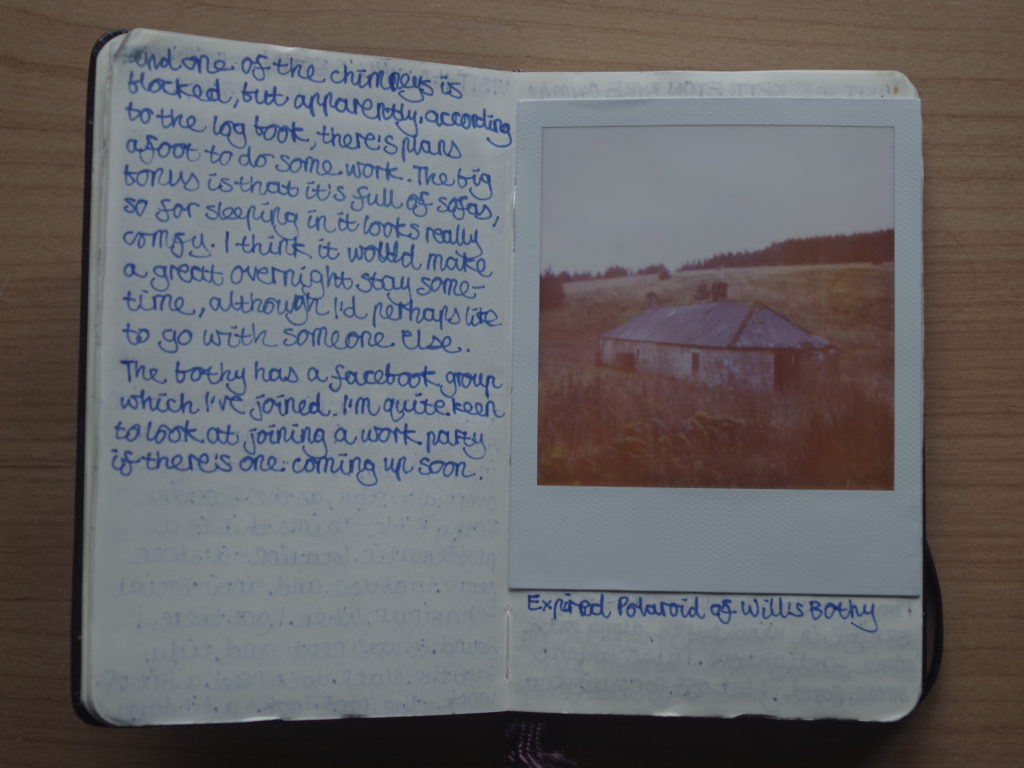 and one of the chimneys is
blocked, but apparently, according
to the log book, there's plans
afoot to do some work. The big
bonus is that it's full of sofas,
so for sleeping in it looks really
comfy. I think it would make
a great overnight stay some-
time, although I'd perhaps like
to go with someone else.
The bothy has a facebook group
which I've joined. I'm quite keen
to look at joining a work party
if there's one coming up soon.
Expired Polaroid of Willis Bothy